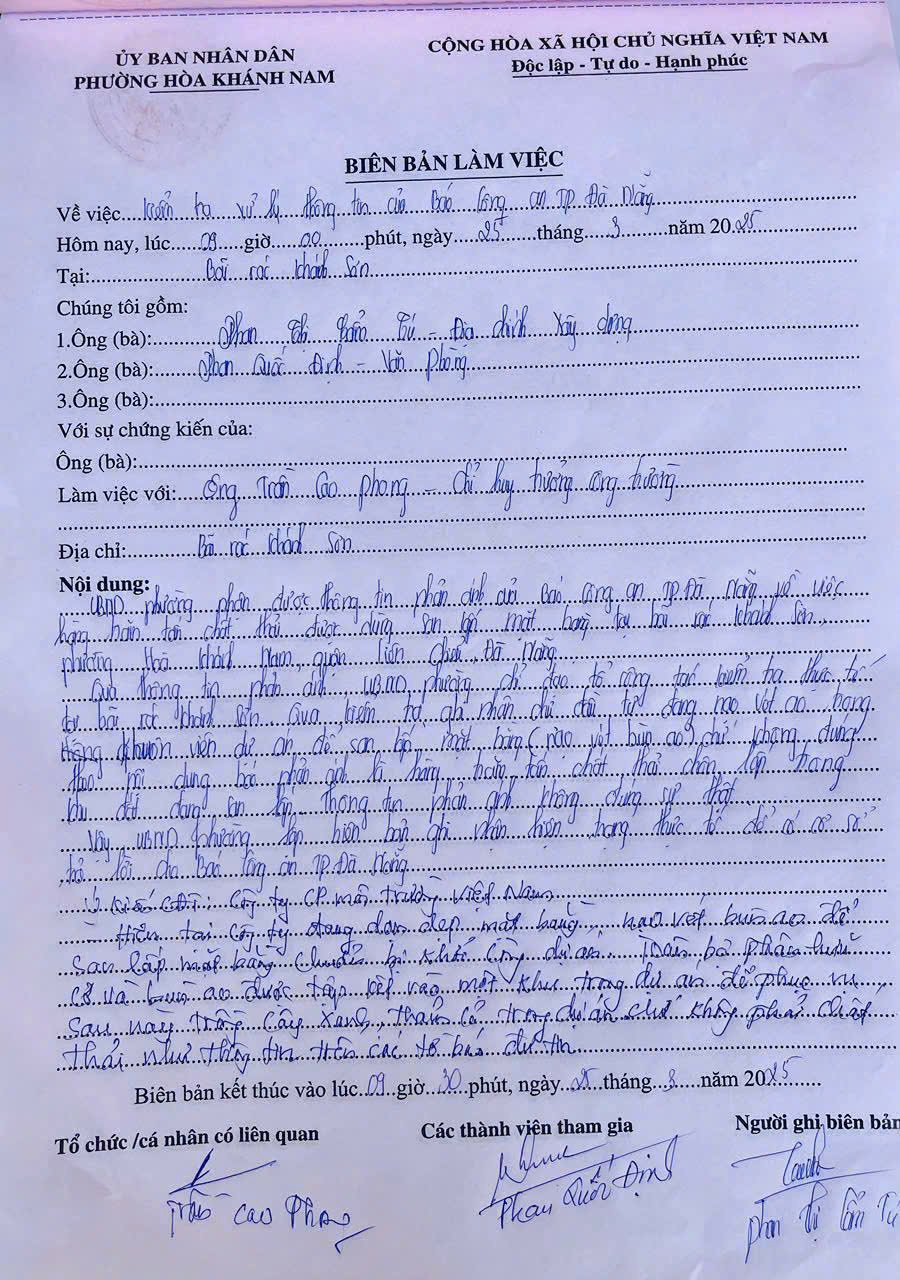 ỦY BAN NHÂN DÂN
PHƯỜNG HÒA KHÁNH NAM
CỘNG HÒA XÃ HỘI CHỦ NGHĨA VIỆT NAM
Độc lập - Tự do - Hạnh phúc
BIÊN BẢN LÀM VIỆC
Về việc kiểm tra xử lý thông tin của Báo Công an TP. Đà Nẵng
Hôm nay, lúc 09 giờ 00 phút, ngày 25 tháng 3 năm 2025
Tại: Bãi rác Khánh Sơn
Chúng tôi gồm:
1.Ông (bà): Phan Thị Tú - Địa chính Xây dựng
2.Ông (bà): Phan Quốc Định - Văn Phòng
3.Ông (bà):
Với sự chứng kiến của:
Ông (bà):
Làm việc với: Ông Trần Cao Phong - Chỉ huy trưởng công trường
Địa chỉ: Bãi rác Khánh Sơn
Nội dung:
UBND phường nhận được thông tin phản ánh của Báo Công an TP. Đà Nẵng về việc
hàng trăm tấn chất thải được dùng san lấp mặt bằng tại bãi rác Khánh Sơn,
phường Hoà Khánh Nam, quận Liên Chiểu, Đà Nẵng.
Qua thông tin phản ánh, UBND phường chỉ đạo tổ công tác kiểm tra thực tế
tại bãi rác Khánh Sơn. Qua kiểm tra, ghi nhận chủ đầu tư đang nạo vét ao trong
khuôn viên dự án để san lấp mặt bằng (nạo vét bùn ao) chứ không đúng
theo nội dung báo phản ánh là hàng trăm tấn chất thải chôn lấp trong
khu đất đang san lấp. Thông tin phản ánh không đúng sự thật.
Vậy UBND phường lập biên bản ghi nhận hiện trạng thực tế để có cơ sở
trả lời cho Báo Công an TP. Đà Nẵng.
Ý kiến : Công ty CP môi trường Việt Nam
- Hiện tại Công ty đang dọn dẹp mặt bằng, nạo vét bùn ao để
San lấp mặt bằng chuẩn bị khởi công dự án. Toàn bộ phần hữu
cơ và bùn ao được tập kết vào một khu trong dự án để phục vụ
sau này trồng cây xanh, thảm cỏ trong dự án chứ không phải chất
thải như thông tin trên các tờ báo đưa tin
Biên bản kết thúc vào lúc 09 giờ 30 phút, ngày 25 tháng 3 năm 2025
Tổ chức /cá nhân có liên quan
Các thành viên tham gia
Người ghi biên bản
Trần Cao Phong
Phan Quốc Định
Phan Thị Tú